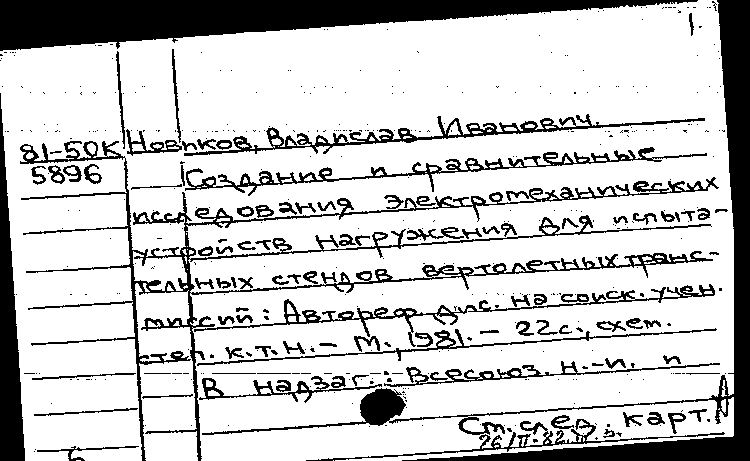 1.
81-50К Новиков, Владислав Иванович.
5896 Создание и сравнительные
исследования электромеханических
устройств нагружения для испыта-
тельных стендов вертолетных транс-
миссий: Автореф. дис. на соиск. учен.
степ. к.т.н. - М., 1981. - 22с., схем.
В надзаг.: Всесоюз. н.-и. и
Ст. след. карт.